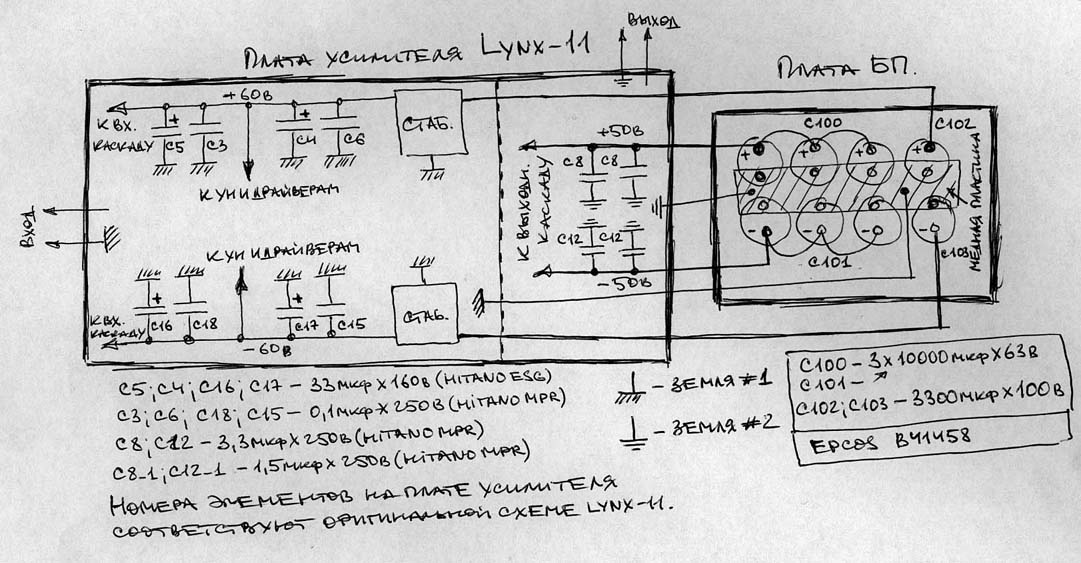 ВЫХОД
ПЛАТА УСИЛИТЕЛЯ LYNX-11
ПЛАТА БП.
К ВХ.
КАСКАДУ
+60В
+
C5
C3
+
C4
C6
СТАБ.
К УНИДРАЙВЕРАМ
ВХОД
К УНИДРАЙВЕРАМ
+
C16
C18
+
C17
C15
СТАБ.
К ВХ.
КАСКАДУ
-60В
К ВЫХОДН.
КАСКАДУ
+50В
C8
C8
C12
C12
-50В
C100
C102
+
+
+
+
-
-
-
-
C101
C103
МЕДНАЯ ПЛАСТИНА
C5; C4; C16; C17 – 33МКФ X 160В (HITANO ESG)
C3; C6; C18; C15 – 0,1МКФ X 250В (HITANO MPR)
C8; C12 – 3,3МКФ X 250В (HITANO MPR)
C8_1; C12_1 – 1,5МКФ X 250В (HITANO MPR)
НОМЕРА ЭЛЕМЕНТОВ НА ПЛАТЕ УСИЛИТЕЛЯ
СООТВЕТСТВУЮТ ОРИГИНАЛЬНОЙ СХЕМЕ LYNX-11.
– ЗЕМЛЯ #1
– ЗЕМЛЯ #2
C100 – 3 X 10000МКФ X 63В
C101 –
C102; C103 – 3300МКФ X 100В
EPCOS B41458